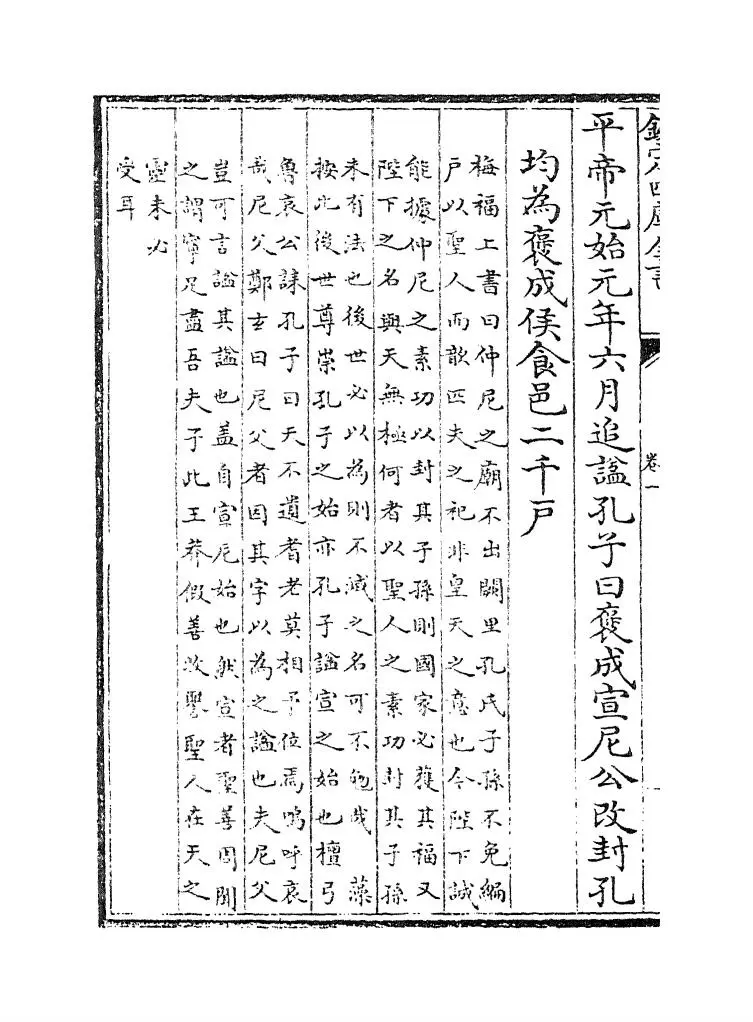 欽定四庫全書
卷一
平帝元始元年六月追諡孔子曰褒成宣尼公改封孔
均為褒成侯食邑二千戶
梅福上書曰仲尼之廟不出闕里孔氏子孫不免編
戶以聖人而歆匹夫之祀非皇天之意也今陛下誠
能據仲尼之素功以封其子孫則國家必獲其福又
陛下之名與天無極何者以聖人之素功封其子孫
未有法也後世必以為則不滅之名可不勉哉　藻
按此後世尊崇孔子之始亦孔子諡宣之始也檀弓
魯哀公誄孔子曰天不遺耆老莫相予位焉嗚呼哀
哉尼父鄭玄曰尼父者因其字以為之諡也夫尼父
豈可言諡其諡也盖自宣尼始也然宣者聖善周聞
之謂寧足盡吾夫子此王莽假善收譽聖人在天之
靈未必
受耳